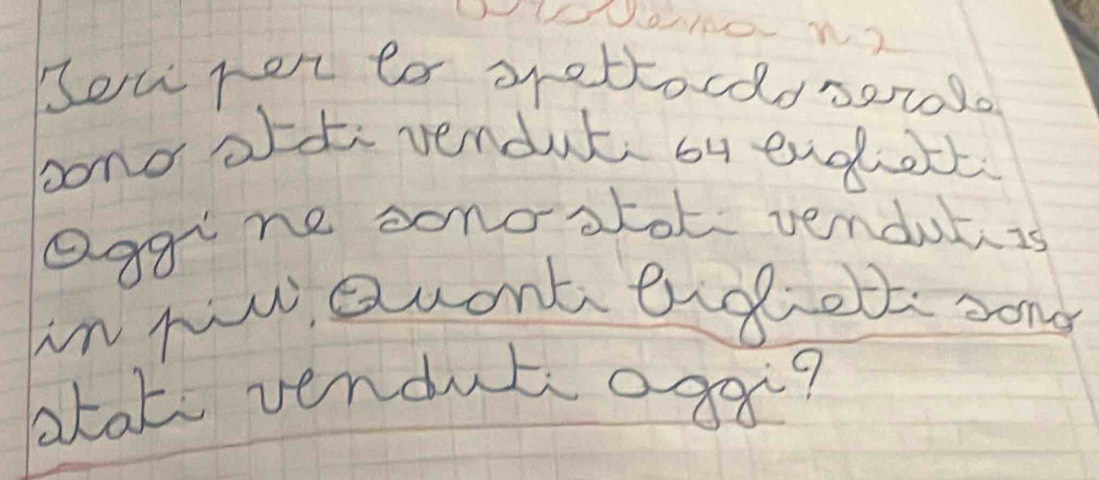 Problema n 2
Ieri per lo spettacolo serale
sono stati venduti 64 biglietti
Oggi ne sono stati venduti 15
in più. Quanti biglietti sono
stati venduti oggi?